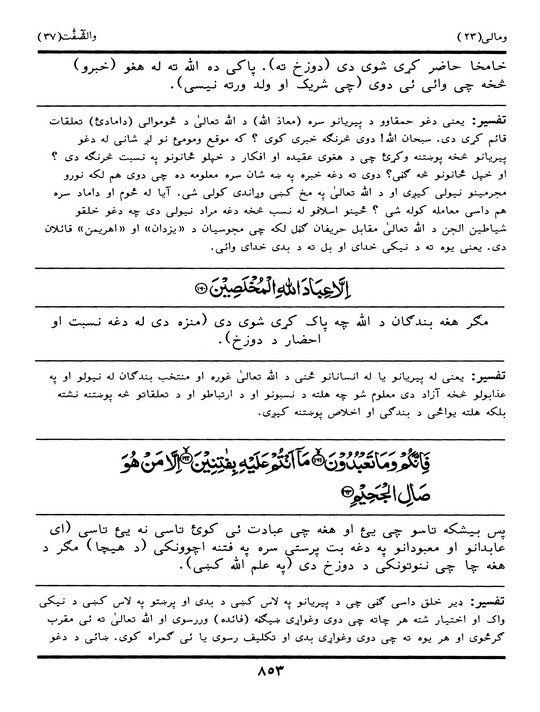 ومالی(۲۳)
والصّٰٓفّٰت(۳۷)
خامخا حاضر کړی شوی دی (دوزخ ته). پاکی ده الله ته له هغو (خبرو)
څخه چی وائی ئی دوی (چی شریک او ولد ورته نیسی).
تفسیر: یعنی دغو حمقاوو د پیریانو سره (معاذ الله) د الله تعالیٰ د څوموالی (دامادئ) تعلقات
قائم کړی دی. سبحان الله! دوی څرنګه خبری کوی ؟ که موقع ومومئ نو لږ شانی له دغو
پیریانو څخه پوښتنه وکړئ چی د هغوی عقیده او افکار د خپلو ځانونو په نسبت څرنګه دی ؟
او خپل ځانونو څه ګڼی؟ دوی ته دغه خبره په ښه شان سره معلومه ده چی دوی هم لکه نورو
مجرمینو نیولی کیږی او د الله تعالیٰ په مخ کښی وړاندی کولی شی. آیا له څوم او داماد سره
هم داسی معامله کوله شی ؟ ځینو اسلافو له نسب څخه دغه مراد نیولی دی چه دغو خلقو
شیاطین الجن د الله تعالیٰ مقابل حریفان ګڼل لکه چی مجوسیان د «یزدان» او «اهریمن» قائلان
دی. یعنی یوه ته د نیکی خدای او بل ته د بدی خدای وائی.
اِلَّا عِبَادَ اللّٰهِ الْمُخْلَصِيْنَ ﴿۱۶۰﴾
مګر هغه بندګان د الله چه پاک کړی شوی دی (منزه دی له دغه نسبت او
احضار د دوزخ).
تفسیر: یعنی له پیریانو یا له انسانانو ځنی د الله تعالیٰ غوره او منتخب بندګان له نیولو او په
عذابولو څخه آزاد دی معلوم شو چه هلته د نسبونو او د ارتباطو او د تعلقاتو څه پوښتنه نشته
بلکه هلته یواځی د بندګی او اخلاص پوښتنه کیږی.
فَاِنَّكُمْ وَمَا تَعْبُدُوْنَ ﴿۱۶۱﴾ مَاۤ اَنْتُمْ عَلَيْهِ بِفٰتِنِيْنَ ﴿۱۶۲﴾ اِلَّا مَنْ هُوَ
صَالِ الْجَحِيْمِ ﴿۱۶۳﴾
پس بیشکه تاسو چی یئ او هغه چی عبادت ئی کوئ تاسی نه یئ تاسی (ای
عابدانو او معبودانو په دغه بت پرستی سره په فتنه اچوونکی (د هیچا) مګر د
هغه چا چی ننوتونکی د دوزخ دی (په علم الله کښی).
تفسیر: ډیر خلق داسی ګڼی چی د پیریانو په لاس کښی د بدی او پرښتو په لاس کښی د نیکی
واک او اختیار شته هر چاته چی دوی وغواړی ښیګڼه (فائده) وررسوی او الله تعالیٰ ته ئی مقرب
ګرځوی او هر یوه ته چی دوی وغواړی بدی او تکلیف رسوی یا ئی ګمراه کوی. ښائی د دغو
۸۵۳